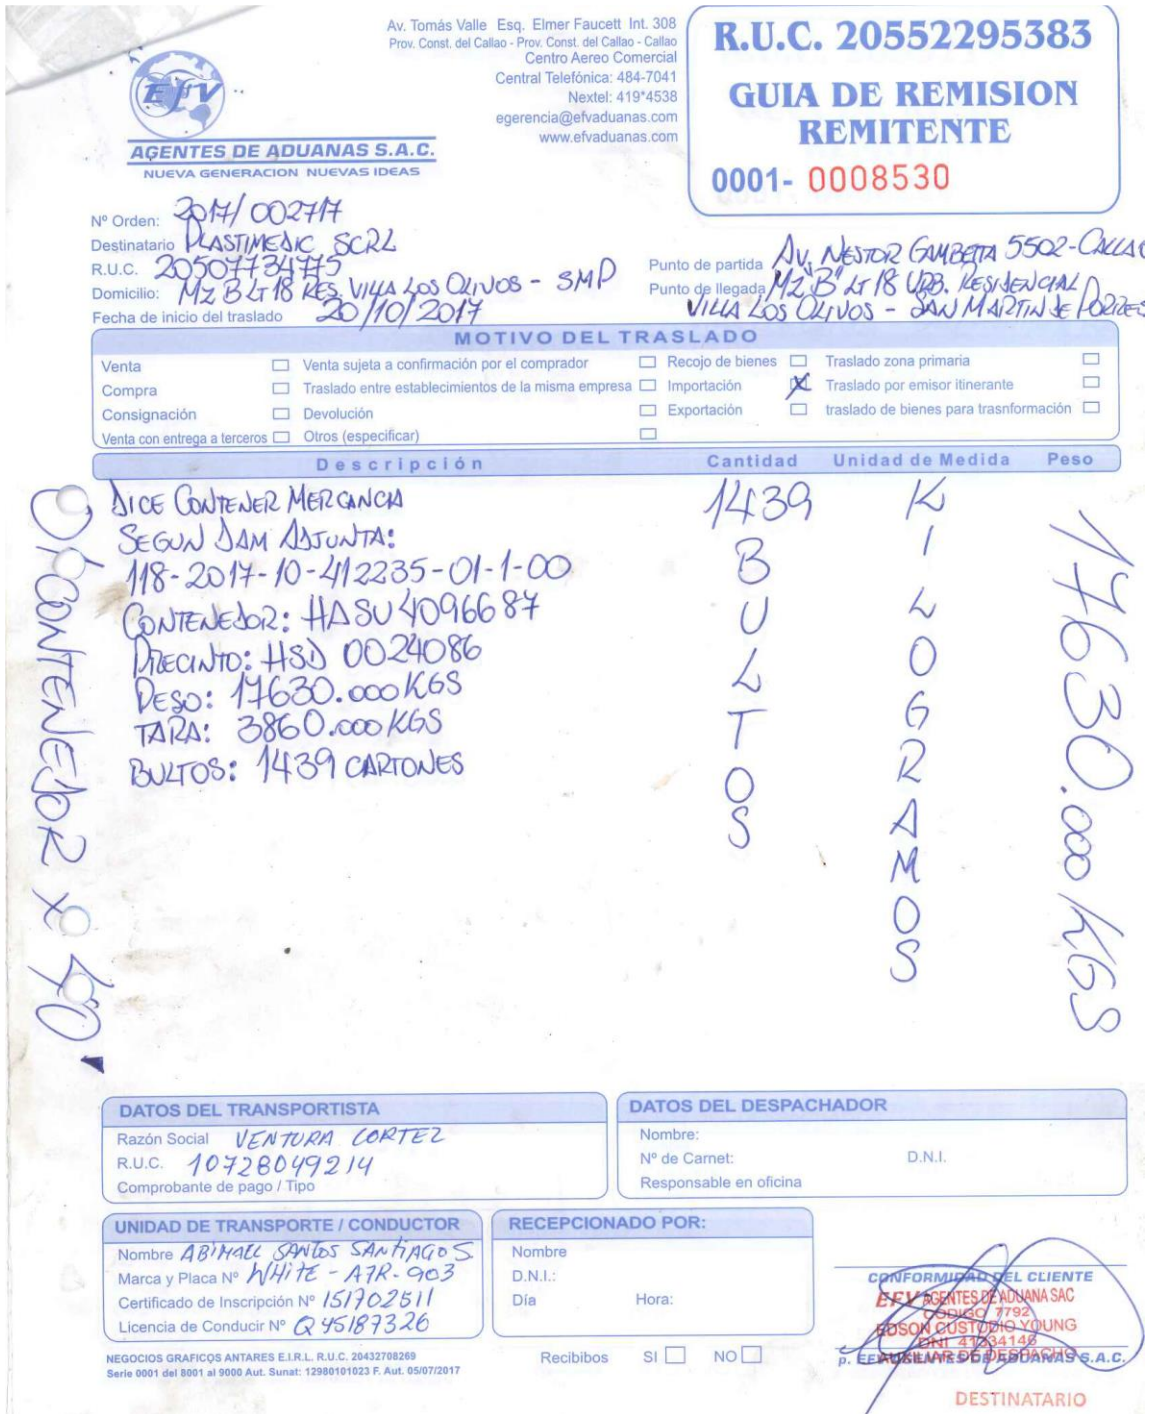 Av. Tomás Valle Esq. Elmer Faucett Int. 308
Prov. Const. del Callao - Prov. Const. del Callao - Callao
Centro Aereo Comercial
Central Telefónica: 484-7041
Nextel: 419*4538
egerencia@efvaduanas.com
www.efvaduanas.com
EFV
AGENTES DE ADUANAS S.A.C.
NUEVA GENERACION NUEVAS IDEAS
R.U.C. 20552295383
GUIA DE REMISION
REMITENTE
0001- 0008530
Nº Orden: 2017/002717
Destinatario PLASTIMEDIC SCRL
R.U.C. 20507734775
Domicilio: MZ B LT 18 RES. VILLA LOS OLIVOS - SMP
Fecha de inicio del traslado 20/10/2017
Punto de partida AV. NESTOR GAMBETTA 5502-CALLAO
Punto de llegada MZ "B" LT 18 URB. RESIDENCIAL
VILLA LOS OLIVOS - SAN MARTIN DE PORRES
MOTIVO DEL TRASLADO
Venta Venta sujeta a confirmación por el comprador Recojo de bienes Traslado zona primaria
Compra Traslado entre establecimientos de la misma empresa Importación X Traslado por emisor itinerante
Consignación Devolución Exportación traslado de bienes para trasnformación
Venta con entrega a terceros Otros (especificar)
Descripción Cantidad Unidad de Medida Peso
DICE CONTENER MERCANCIA
SEGUN DAM ADJUNTA:
118-2017-10-412235-01-1-00
CONTENEDOR: HASU 4096687
PRECINTO: HSD 0024086
PESO: 17630.000 KGS
TARA: 3860.000 KGS
BULTOS: 1439 CARTONES
1439
BULTOS
KILOGRAMOS
17630.000 KGS
01 CONTENEDOR X 40'
DATOS DEL TRANSPORTISTA
Razón Social VENTURA CORTEZ
R.U.C. 10728049214
Comprobante de pago / Tipo
DATOS DEL DESPACHADOR
Nombre:
Nº de Carnet: D.N.I.
Responsable en oficina
UNIDAD DE TRANSPORTE / CONDUCTOR
Nombre ABIMAEL SANTOS SANTIAGO S
Marca y Placa Nº WHITE - A7R-903
Certificado de Inscripción Nº 151702511
Licencia de Conducir Nº Q45187326
RECEPCIONADO POR:
Nombre
D.N.I.:
Día Hora:
CONFORMIDAD DEL CLIENTE
EFV AGENTES DE ADUANA SAC
CODIGO 7792
EDSON CUSTODIO YOUNG
DNI 41234146
AUXILIAR DE DESPACHO
p. EFV AGENTES DE ADUANAS S.A.C.
NEGOCIOS GRAFICOS ANTARES E.I.R.L. R.U.C. 20432708269
Serie 0001 del 8001 al 9000 Aut. Sunat: 12980101023 F. Aut. 05/07/2017
Recibibos SI NO
DESTINATARIO